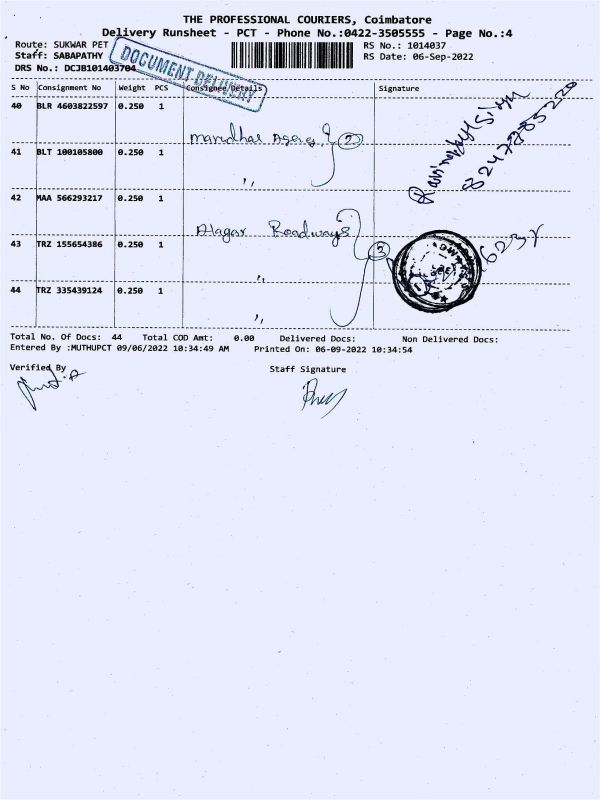 THE PROFESSIONAL COURIERS, Coimbatore
Delivery Runsheet - PCT - Phone No.:0422-3505555 - Page No.:4
Route: SUKWAR PET
RS No.: 1014037
Staff: SABAPATHY
RS Date: 06-Sep-2022
DRS No.: DCJB101403704
DOCUMENT DELIVERY
S No Consignment No Weight PCS Consignee Details Signature
40 BLR 4603822597 0.250 1
2
8247885220
41 BLT 100105800 0.250 1 ,,
42 MAA 566293217 0.250 1
Alagar Roadways
43 TRZ 155654386 0.250 1 ,,
3
44 TRZ 335439124 0.250 1 ,,
Total No. Of Docs: 44 Total COD Amt: 0.00 Delivered Docs: Non Delivered Docs:
Entered By :MUTHUPCT 09/06/2022 10:34:49 AM Printed On: 06-09-2022 10:34:54
Verified By
Staff Signature